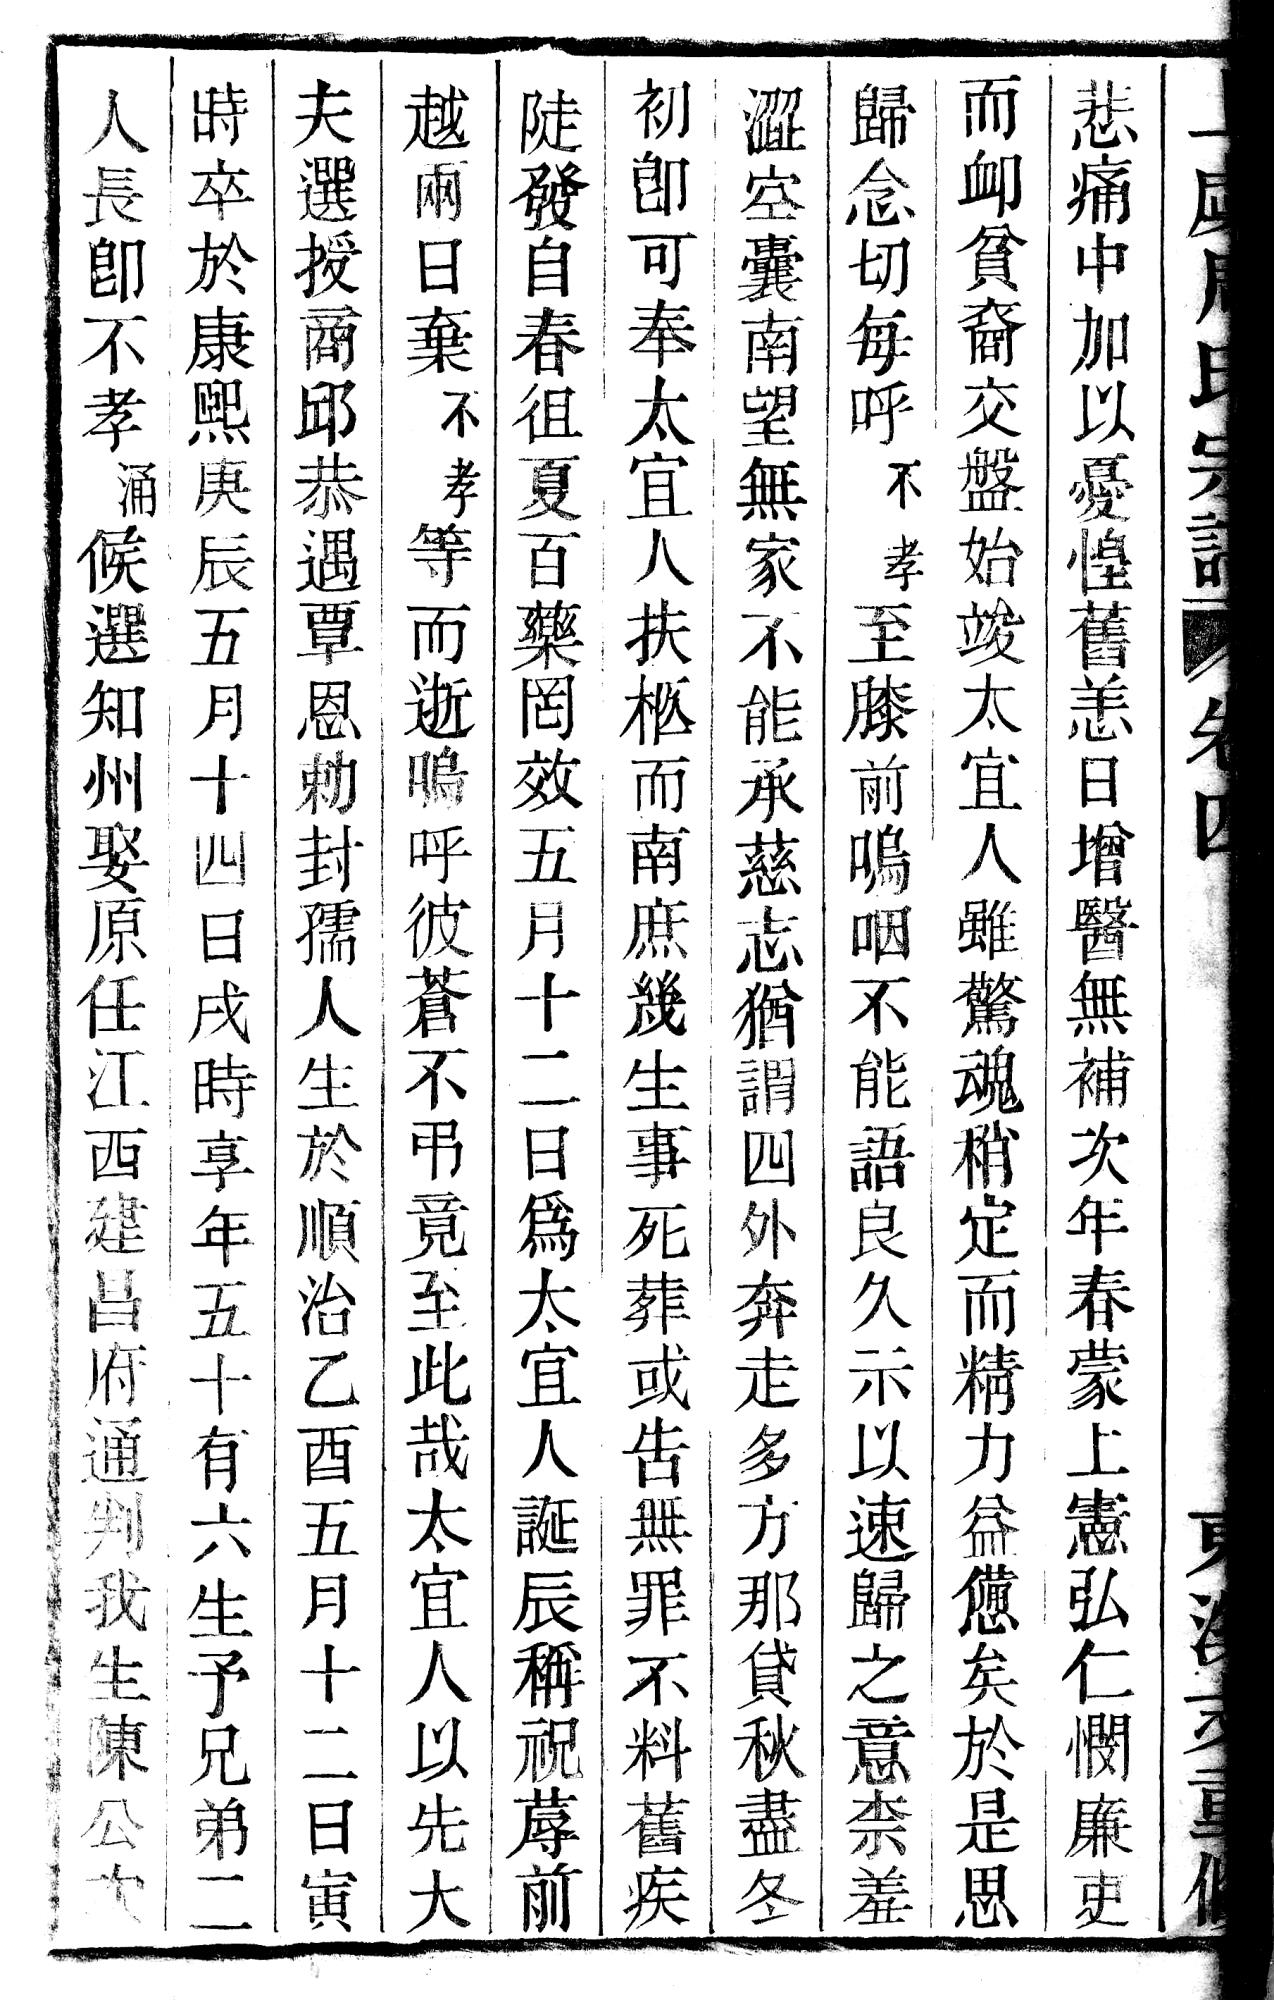 悲痛中加以憂惶舊恙日增醫無補次年春蒙上憲弘仁憫廉吏
而卹貧裔交盤始竣太宜人雖驚魂稍定而精力益憊矣於是思
歸念切每呼不孝至膝前嗚咽不能語良久示以速歸之意柰羞
澀空囊南望無家不能承慈志猶謂四外奔走多方那貸秋盡冬
初卽可奉太宜人扶柩而南庶幾生事死葬或告無罪不料舊疾
陡發自春徂夏百藥罔效五月十二日爲太宜人誕辰稱祝蓐前
越兩日棄不孝等而逝嗚呼彼蒼不弔竟至此哉太宜人以先大
夫選授商邱恭遇覃恩勅封孺人生於順治乙酉五月十二日寅
時卒於康熙庚辰五月十四日戌時享年五十有六生予兄弟二
人長卽不孝涌候選知州娶原任江西建昌府通判我生陳公次